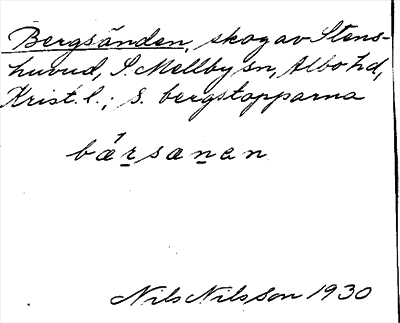 Bergsänden, skog av Stens-
huvud, S. Mellby sn, Albo hd,
Krist. l.; S. bergstopparna
bǽrsanen
Nils Nilsson 1930